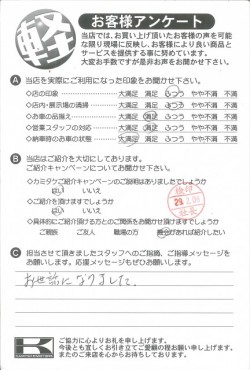 軽
お客様アンケート
当店では、お買い上げ頂いたお客様の声を可能
な限り現場に反映し、お客様により良い商品と
サービスを提供する事に努めています。
大変お手数ですが是非お声をお聞かせ下さい。
A 当店を実際にご利用になった印象をお聞かせ下さい。
◇店の印象 大満足 満足 ふつう やや不満 不満
◇店内・展示場の清掃 大満足 満足 ふつう やや不満 不満
◇お車の品揃え 大満足 満足 ふつう やや不満 不満
◇営業スタッフの対応 大満足 満足 ふつう やや不満 不満
◇納車時のお車の状態 大満足 満足 ふつう やや不満 不満
B 当店はご紹介を大切にしております。
ご紹介キャンペーンについてお聞かせ下さい。
◇カミタケご紹介キャンペーンのご説明はありましたでしょうか
はい いいえ
◇ご紹介を頂けますでしょうか
はい いいえ
◇具体的にご紹介頂ける方とのご関係をお聞かせ頂けますでしょうか
ご親族 ご友人 職場の方 機会があれば紹介したい
C 担当させて頂きましたスタッフへのご指摘、ご指導メッセージを
お願いします。応援メッセージもぜひお願いします。
お世話になりました。
K
ご協力に心よりお礼を申し上げます。
今後とも宜しくお引き立てご愛顧の程お願い申し上げます。
またのご来店を心からお待ちしております。